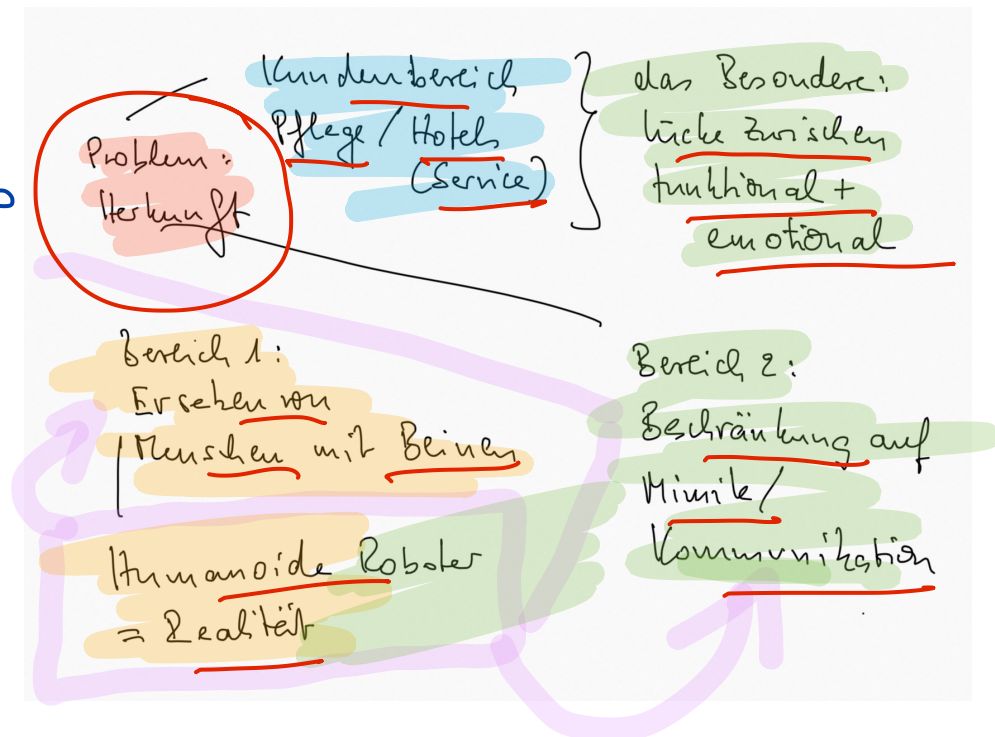 Kundenbereich
Pflege / Hotels
(Service)
das Besondere:
Lücke zwischen
funktional +
emotional
Problem:
Herkunft
Bereich 1:
Ersetzen von
Menschen mit Beinen
Humanoide Roboter
= Realität
Bereich 2:
Beschränkung auf
Mimik/
Kommunikation